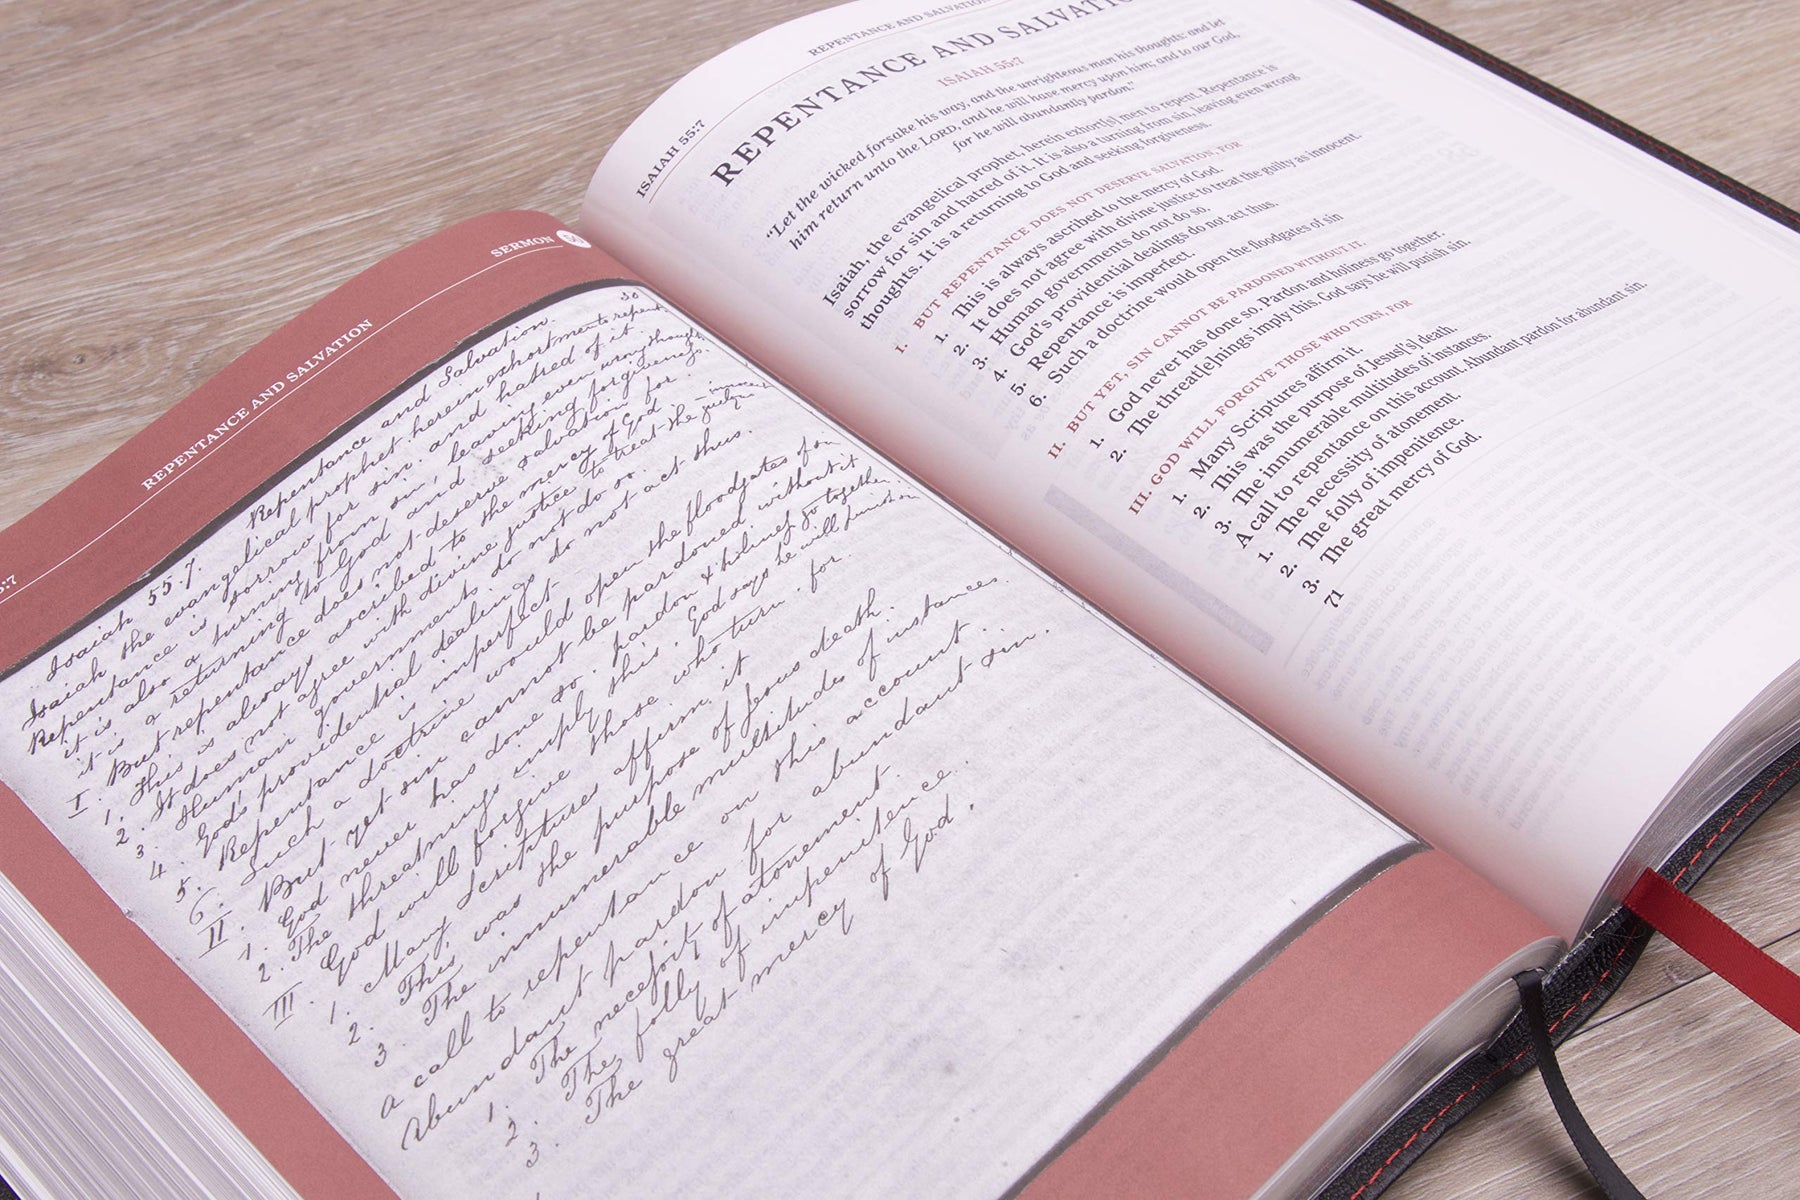 5:7
REPENTANCE AND SALVATION
SERMON
50
Repentance and Salvation.
Isaiah 55.7.
Isaiah the evangelical prophet herein exhort men to repent
Repentance is sorrow for sin and hatred of it.
it is also a turning from sin, leaving even wrong thoughts
it is a returning to God and seeking forgiveness.
I. But repentance does not deserve salvation for.
1. This is always ascribed to the mercy of God
2. It does not agree with divine justice to treat the guilty as innocent
3. Human governments do not do so.
4. God's providential dealings do not act thus.
5. Repentance is imperfect
6. Such a doctrine would open the floodgates of sin
II. But yet sin cannot be pardoned without it
1. God never has done so. pardon & holiness go together.
2. The threatnings imply this. God says he will punish sin
III. God will forgive those who turn. for.
1. Many Scriptures affirm it
2. This was the purpose of Jesus death.
3. The innumerable multitudes of instances.
a call to repentance on this account
Abundant pardon for abundant sin.
1. The necessity of atonement.
2. The folly of impenitence.
3. The great mercy of God.
ISAIAH 55:7
REPENTANCE AND SALVATION
REPENTANCE AND SALVATIO
ISAIAH 55:7
"Let the wicked forsake his way, and the unrighteous man his thoughts: and let
him return unto the LORD, and he will have mercy upon him; and to our God,
for he will abundantly pardon."
Isaiah, the evangelical prophet, herein exhort[s] men to repent. Repentance is
sorrow for sin and hatred of it. It is also a turning from sin, leaving even wrong
thoughts. It is a returning to God and seeking forgiveness.
I. BUT REPENTANCE DOES NOT DESERVE SALVATION, FOR
1. This is always ascribed to the mercy of God.
2. It does not agree with divine justice to treat the guilty as innocent.
3. Human governments do not do so.
4. God's providential dealings do not act thus.
5. Repentance is imperfect.
6. Such a doctrine would open the floodgates of sin
II. BUT YET, SIN CANNOT BE PARDONED WITHOUT IT.
1. God never has done so. Pardon and holiness go together.
2. The threat[e]nings imply this. God says he will punish sin.
III. GOD WILL FORGIVE THOSE WHO TURN, FOR
1. Many Scriptures affirm it.
2. This was the purpose of Jesus['s] death.
3. The innumerable multitudes of instances.
A call to repentance on this account. Abundant pardon for abundant sin.
1. The necessity of atonement.
2. The folly of impenitence.
3. The great mercy of God.
71